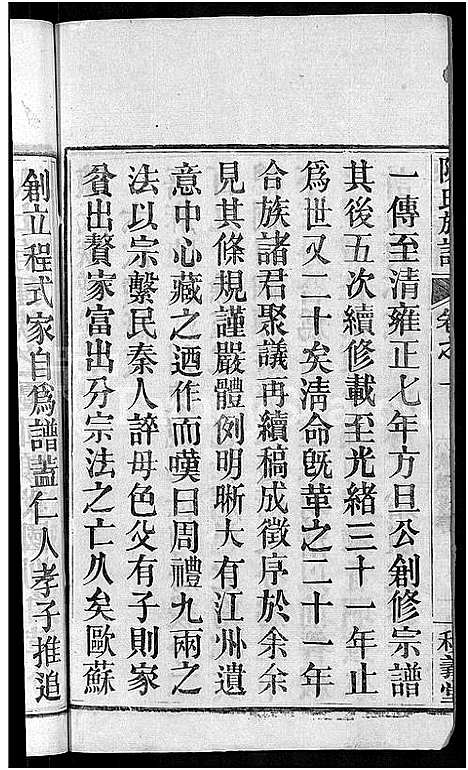 陳氏族譜
卷之一
一傳至清雍正七年方旦公創修宗譜
其後五次續修載至光緒三十一年止
爲世又二十矣淸命旣革之二十一年
合族諸君聚議再續稿成徵序於余余
見其條規謹嚴體例明晰大有江州遺
意中心藏之迺作而嘆曰周禮九兩之
法以宗繫民秦人誶母色父有子則家
貧出贅家富出分宗法之亡久矣歐蘇
創立程式家自爲譜蓋仁人孝子推追
義堂